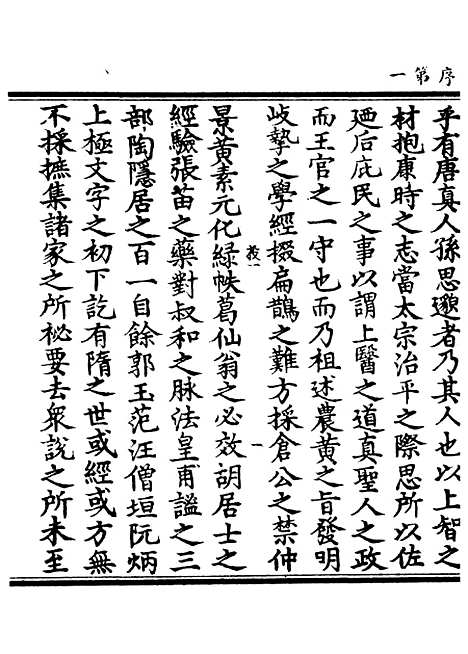 序第一
乎有唐真人孫思邈者乃其人也以上智之
材抱康時之志當太宗治平之際思所以佐
廼后庇民之事以謂上醫之道真聖人之政
而王官之一守也而乃祖述農黃之旨發明
岐摯之學經掇扁鵲之難方採倉公之禁仲
義一
一
景黃素元化綠帙葛仙翁之必效胡居士之
經驗張苗之藥對叔和之脉法皇甫謐之三
部陶隱居之百一自餘郭玉范汪僧垣阮炳
上極文字之初下訖有隋之世或經或方無
不採摭集諸家之所祕要去衆說之所未至